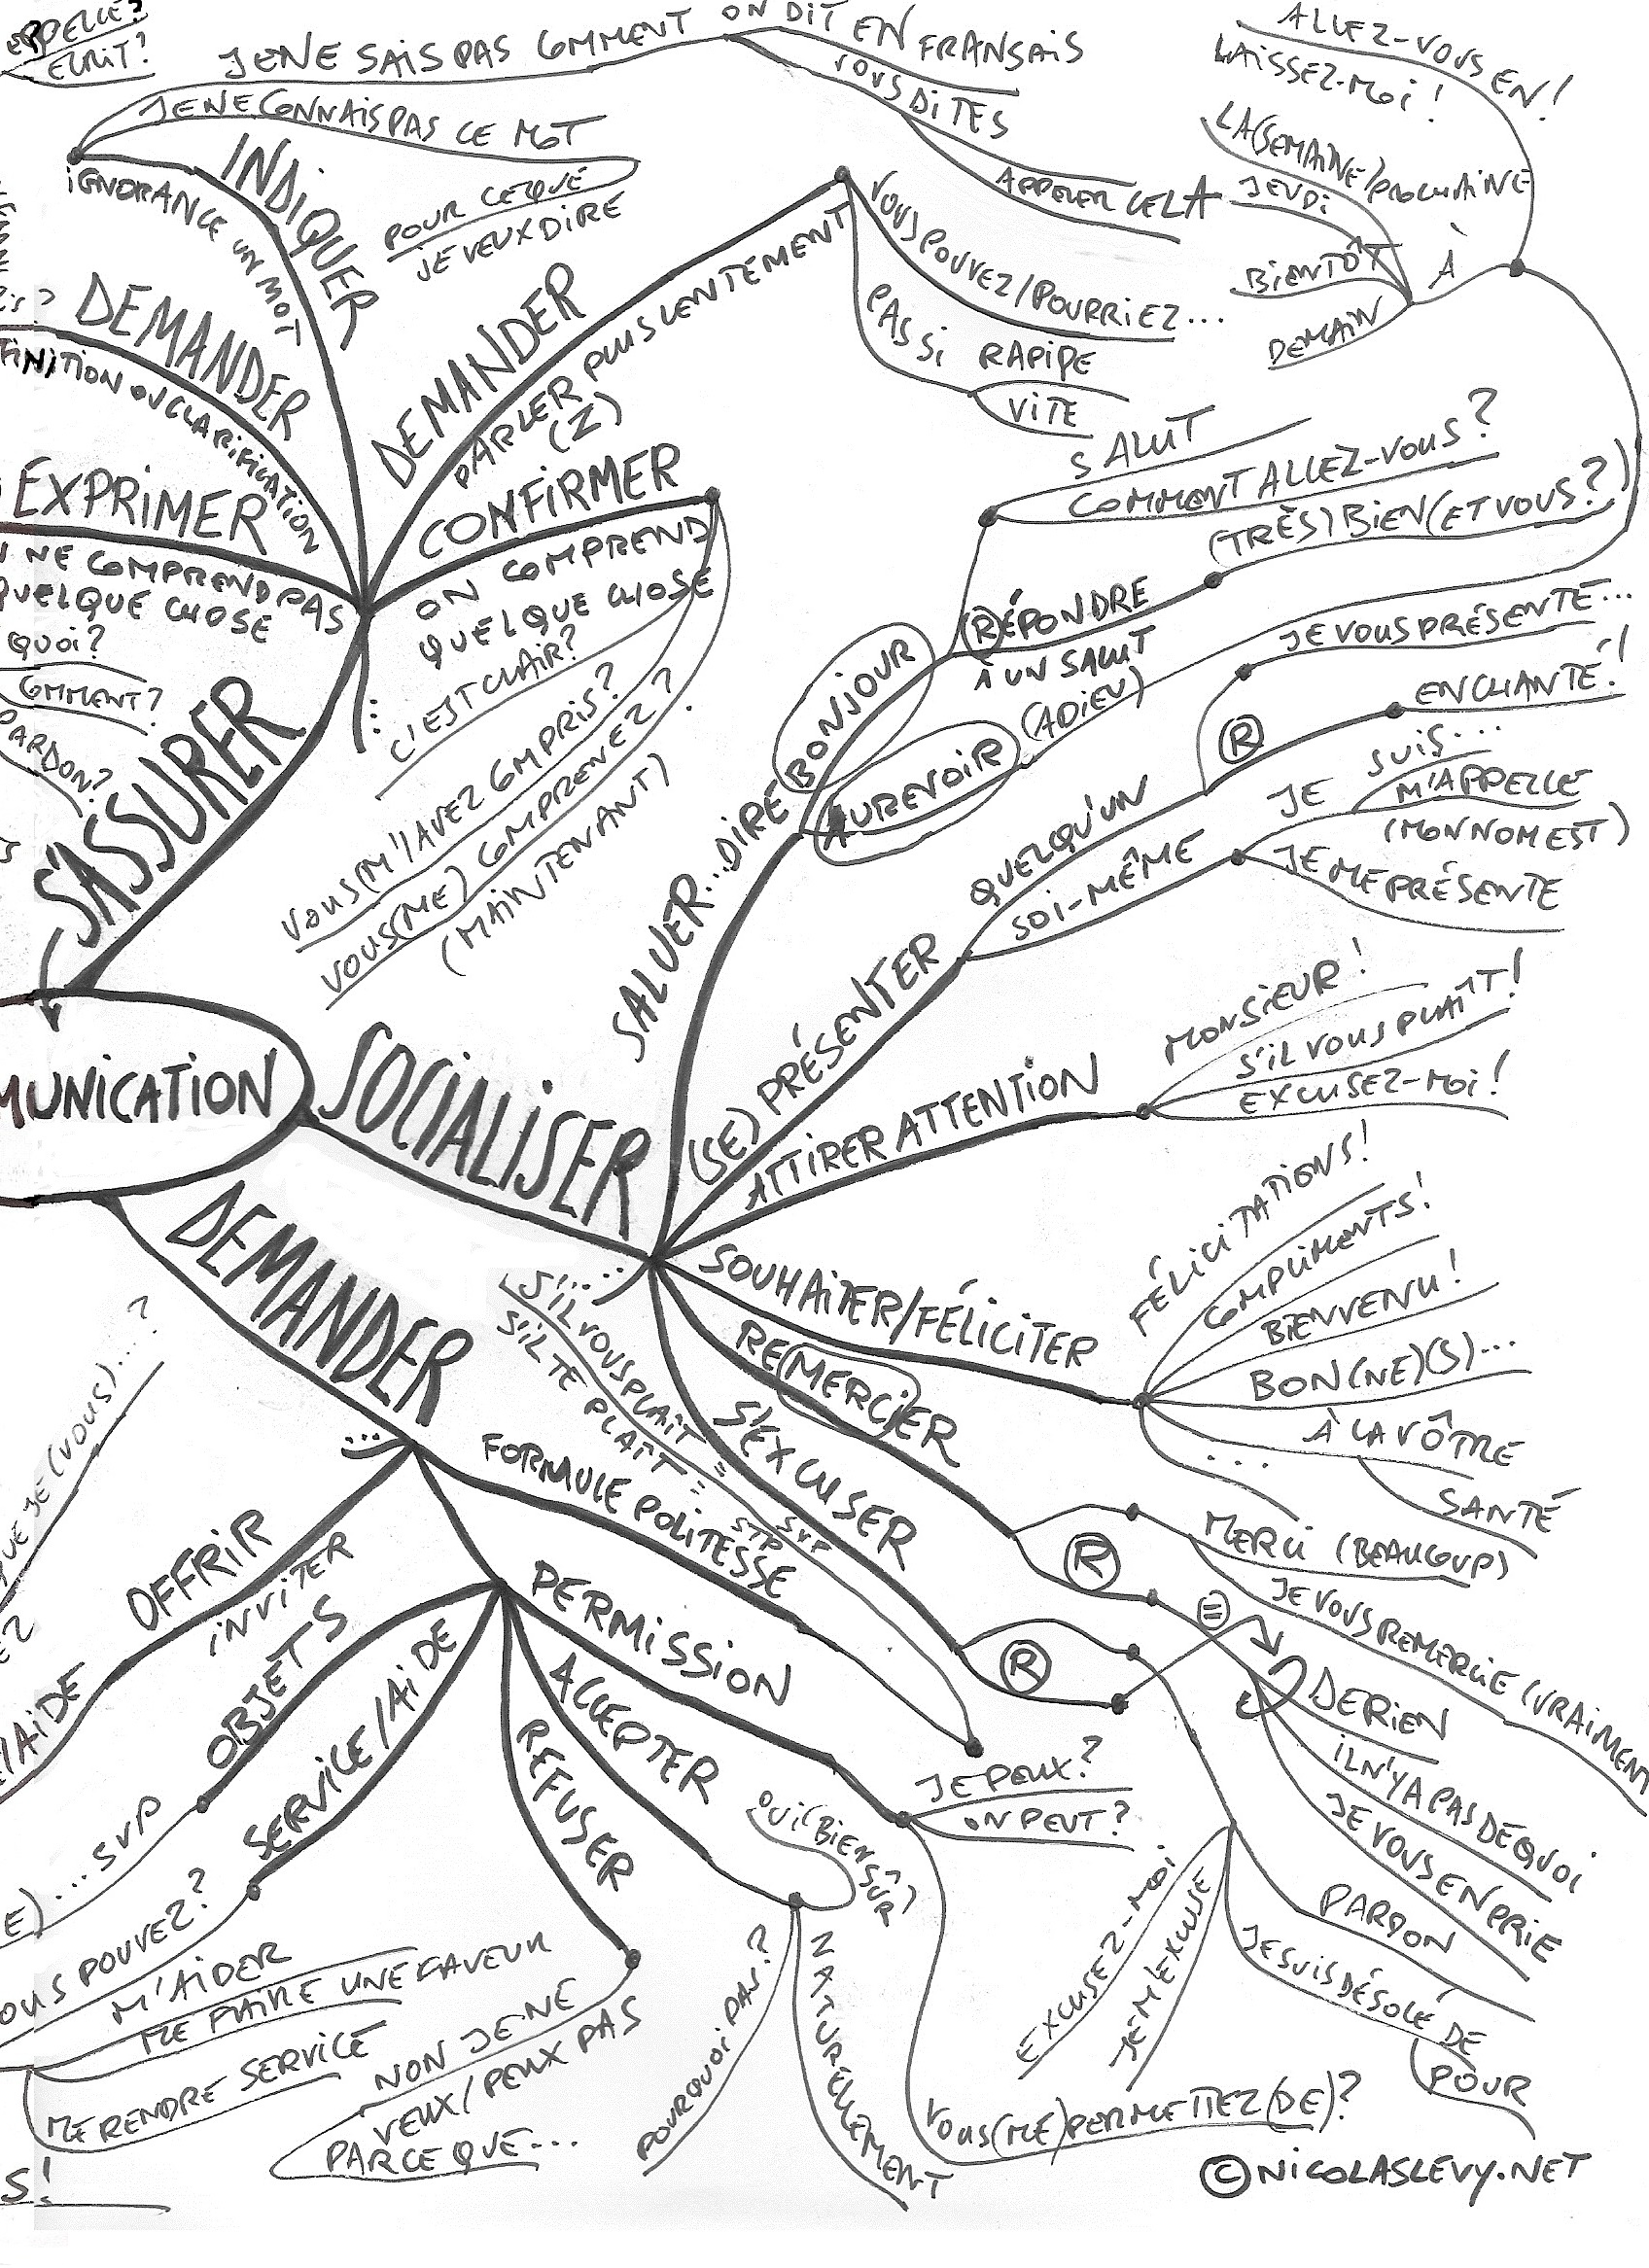 APPELLE?
ECRIT?
JE NE SAIS PAS COMMENT ON DIT EN FRANSAIS
VOUS DITES
APPELER CELA
JE NE CONNAIS PAS CE MOT
POUR CE QUE
JE VEUX DIRE
INDIQUER
IGNORANCE UN MOT
ALLEZ-VOUS EN!
LAISSEZ-MOI!
LA (SEMAINE) PROCHAINE
JEUDI
BIENTÔT
DEMAIN
À
DEMANDER
FINITION OU CLARIFICATION
DEMANDER
PARLER PLUS LENTEMENT
(Z)
VOUS POUVEZ/POURRIEZ...
PAS SI RAPIDE
VITE
EXPRIMER
NE COMPREND PAS
QUELQUE CHOSE
QUOI?
COMMENT?
PARDON?
CONFIRMER
ON COMPREND
QUELQUE CHOSE
C'EST CLAIR?
VOUS (M') AVEZ COMPRIS?
VOUS (ME) COMPRENEZ?
(MAINTENANT)
S'ASSURER
SALUT
COMMENT ALLEZ-VOUS?
(TRÈS) BIEN (ET VOUS?)
RÉPONDRE
À UN SALUT
SALUER...DIRE
BONJOUR
AUREVOIR
(ADIEU)
JE VOUS PRÉSENTE...
ENCHANTÉ!
R
QUELQU'UN
SOI-MÊME
JE SUIS...
M'APPELLE
(MON NOM EST)
JE ME PRÉSENTE
(SE) PRÉSENTER
MUNICATION
SOCIALISER
ATTIRER ATTENTION
MONSIEUR!
S'IL VOUS PLAÎT!
EXCUSEZ-MOI!
SOUHAITER/FÉLICITER
FÉLICITATIONS!
COMPLIMENTS!
BIENVENU!
BON(NE)(S)...
À LA VÔTRE
SANTÉ
...
REMERCIER
R
MERCI (BEAUCOUP)
JE VOUS REMERCIE (VRAIMENT
=
DE RIEN
IL N'Y A PAS DE QUOI
JE VOUS EN PRIE
S'EXCUSER
R
PARDON
JE SUIS DÉSOLÉ DE
POUR
EXCUSEZ-MOI
JE M'EXCUSE
DEMANDER
FORMULE POLITESSE
S'IL VOUS PLAIT = SVP
S'IL TE PLAÎT = STP
QUE JE (VOUS)...?
OFFRIR
INVITER
/AIDE
PERMISSION
JE PEUX?
ON PEUT?
VOUS (ME) PERMETTEZ (DE)?
ACCEPTER
OUI (BIEN SÛR)
POURQUOI PAS?
NATURELLEMENT
REFUSER
NON JE NE
VEUX/PEUX PAS
PARCE QUE...
OBJETS
E)...SVP
SERVICE/AIDE
OUS POUVEZ?
M'AIDER
ME FAIRE UNE FAVEUR
ME RENDRE SERVICE
S!
©NICOLASLEVY.NET